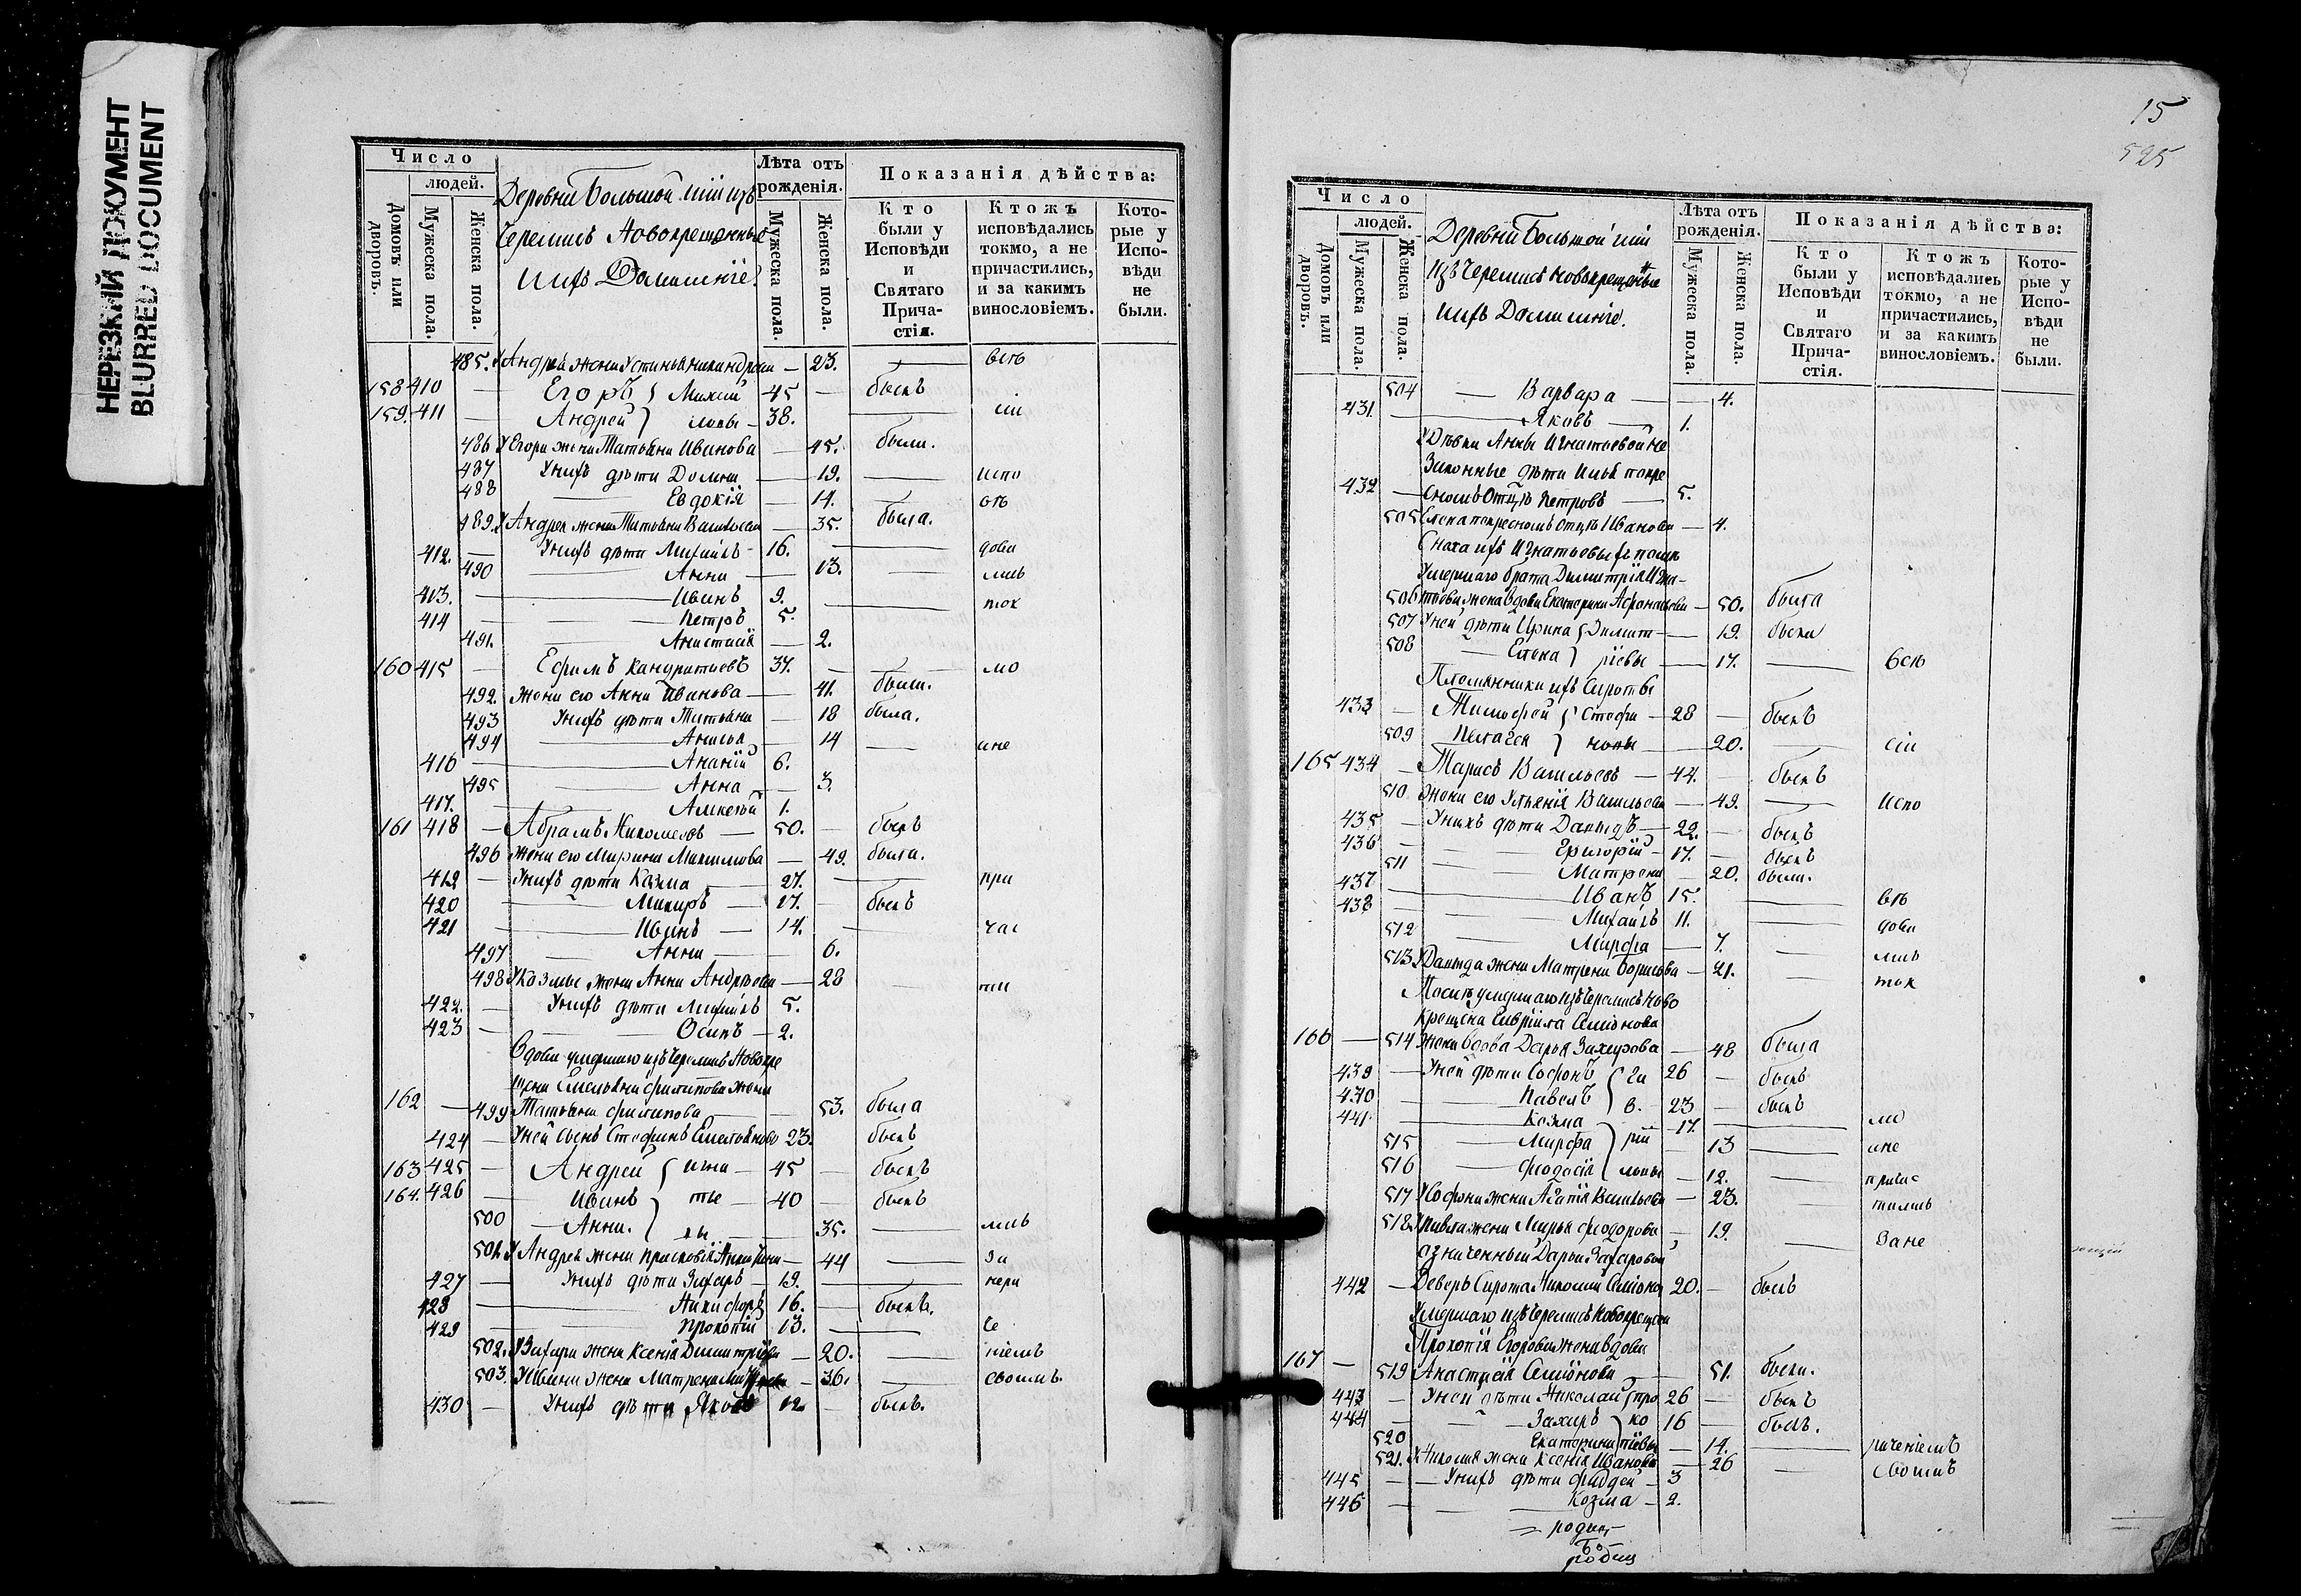 НЕРЕЗКИЙ ДОКУМЕНТ
BLURRED DOCUMENT
Число
людей.
Домовъ или дворовъ.
Мужеска пола.
Женска пола.
Деревни Большой
Черемисъ Новокрещенные
ихъ Домашніе.
Лѣта отъ рожденія.
Мужеска пола.
Женска пола.
Показанія дѣйства:
Кто были у Исповѣди и Святаго Прича-стія.
Ктожъ исповѣдались токмо, а не причастились, и за какимъ винословіемъ.
Кото-рые у Испо-вѣди не были.
485. У Андрея жена Устинья — 23. — всѣ
158 410 — Егоръ 45 — былъ
159. 411 — Андрей — 38. — сіи
486 У Егора жена Татьяна Иванова — 45. была.
487 У нихъ дѣти Домна — 19. — испо
488 — Евдокія — 14. — вѣ
489. У Андрея жена Татьяна Васильева — 35. была.
412. — У нихъ дѣти Михаилъ — 16. — дова
490 — Анна — 13. — лись
413. — Иванъ 9. — ток
414 — Петръ 5.
491. — Анастасія — 2.
160 415 — Ефимъ Кандратьевъ 37. — мо
492. Жена его Анна Иванова — 41. была.
493 У нихъ дѣти Татьяна — 18 была.
494 — 14 — ине
416 — Ананій 6.
495 — Анна — 3.
417. — Алексѣй 1.
161 418 — Абрамъ Николаевъ — 50. — былъ
496 Жена его Марина Максимова — 49. была.
419 — У нихъ дѣти Казма — 27. — при
420 — Макаръ — 17. — былъ
421 — Иванъ — 14. — час
497 — Анна — 6.
498 У Козмы жена Анна Андреева — 28 — ти
422. — У нихъ дѣти Михаилъ 5.
423 — Осипъ — 2.
Вдова умершаго изъ Черемисъ Новокре
щена Емельяна Филипова жена
162 — 499 Татьяна Филипова — 53. была
424 — У ней сынъ Стефанъ Емельяновъ 23. былъ
163 425 — Андрей { Игна — 45 — былъ
164. 426 — Иванъ } тье — 40 — былъ
500 — Анна. } вы — 35. — лись
501. У Андрея жена Прасковія — 44 — за
427 — У нихъ дѣти Захаръ — 19. — нера
428 — Никифоръ 16. — былъ.
429 — Прокопій 13. — че
502. У Захара жена Ксенія Димитріева — 20. — ніемъ
503. У Ивана жена Матрена — 36. — своимъ.
430 — У нихъ дѣти Яковъ 12. — былъ.
15
525
Число
людей.
Домовъ или дворовъ.
Мужеска пола.
Женска пола.
Деревни Большой
Изъ Черемисъ новокрещеные
ихъ Домашніе.
Лѣта отъ рожденія.
Мужеска пола.
Женска пола.
Показанія дѣйства:
Кто были у Исповѣди и Святаго Прича-стія.
Ктожъ исповѣдались токмо, а не причастились, и за какимъ винословіемъ.
Кото-рые у Испо-вѣди не были.
504 — Варвара — 4.
431. — Яковъ — 1.
У Дѣвки Анны Игнатьевой не
Законные дѣти Илья покре
432 — сномъ Отцѣ Петровъ — 5.
505 Елена покресномъ отцѣ Иванова — 4.
Сноха ихъ Игнатьевыхъ
Умершаго брата Димитрія Игна-
506 тьева жена вдова Екатерина — 50. была
507 У ней дѣти Ирина { Димит — 19. была
508 — Елена } ріевы — 17. — всѣ
Племянники ихъ Сироты
433 — Тимофей { Стефа — 28 — былъ
509 Пелагея } новы — 20. — сіи
165 434 — Тарасъ Васильевъ — 44. — былъ
510 Жена его Ульянія Васильева — 49. — испо
435 — У нихъ дѣти Давыдъ — 22. — былъ
436 — Григорій — 17. — былъ
511 — Матрена — 20. была.
437 — Иванъ 15. — вѣ
438 — Михаилъ 11. — дова
512 — Марфа — 7. — лись
513 У Давыда жена Матрена Борисова — 21. — ток
После умершаго изъ Черемисъ Ново
крещена Гаврiила Семiонова
166 — 514 Жена вдова Дарья Захарова — 48 была
439 — У ней дѣти Софонъ { Га 26 — былъ
440 — Павелъ } в. — 23 — былъ
441 — Козма — 17. — мо
515 — Марфа } рiи — 13 — ине
516 — Феодосія { ловы — 12. — причас
517 У Софона жена Агапія Васильева — 23. — тились
518. У Павла жена Марья Феодорова — 19. — Зане
означенный Дарьи Захаровой
442 — Деверь Сирота Николай Семіонов 20. — былъ
Умершаго изъ Черемисъ Новокрещен
Прокопія Егорова жена вдова
167 — 519 Анастасія Семіонова — 51. была.
443 — У ней дѣти Николай { про 26 — былъ
444 — Захаръ } ко 16 — былъ.
520 Екатерина } піевы — 14. — раченіемъ
521. У Николая жена Ксенія Иванова — 26 — своимъ
445 — У нихъ дѣти Фаддей — 3
446 — Козма — 2.